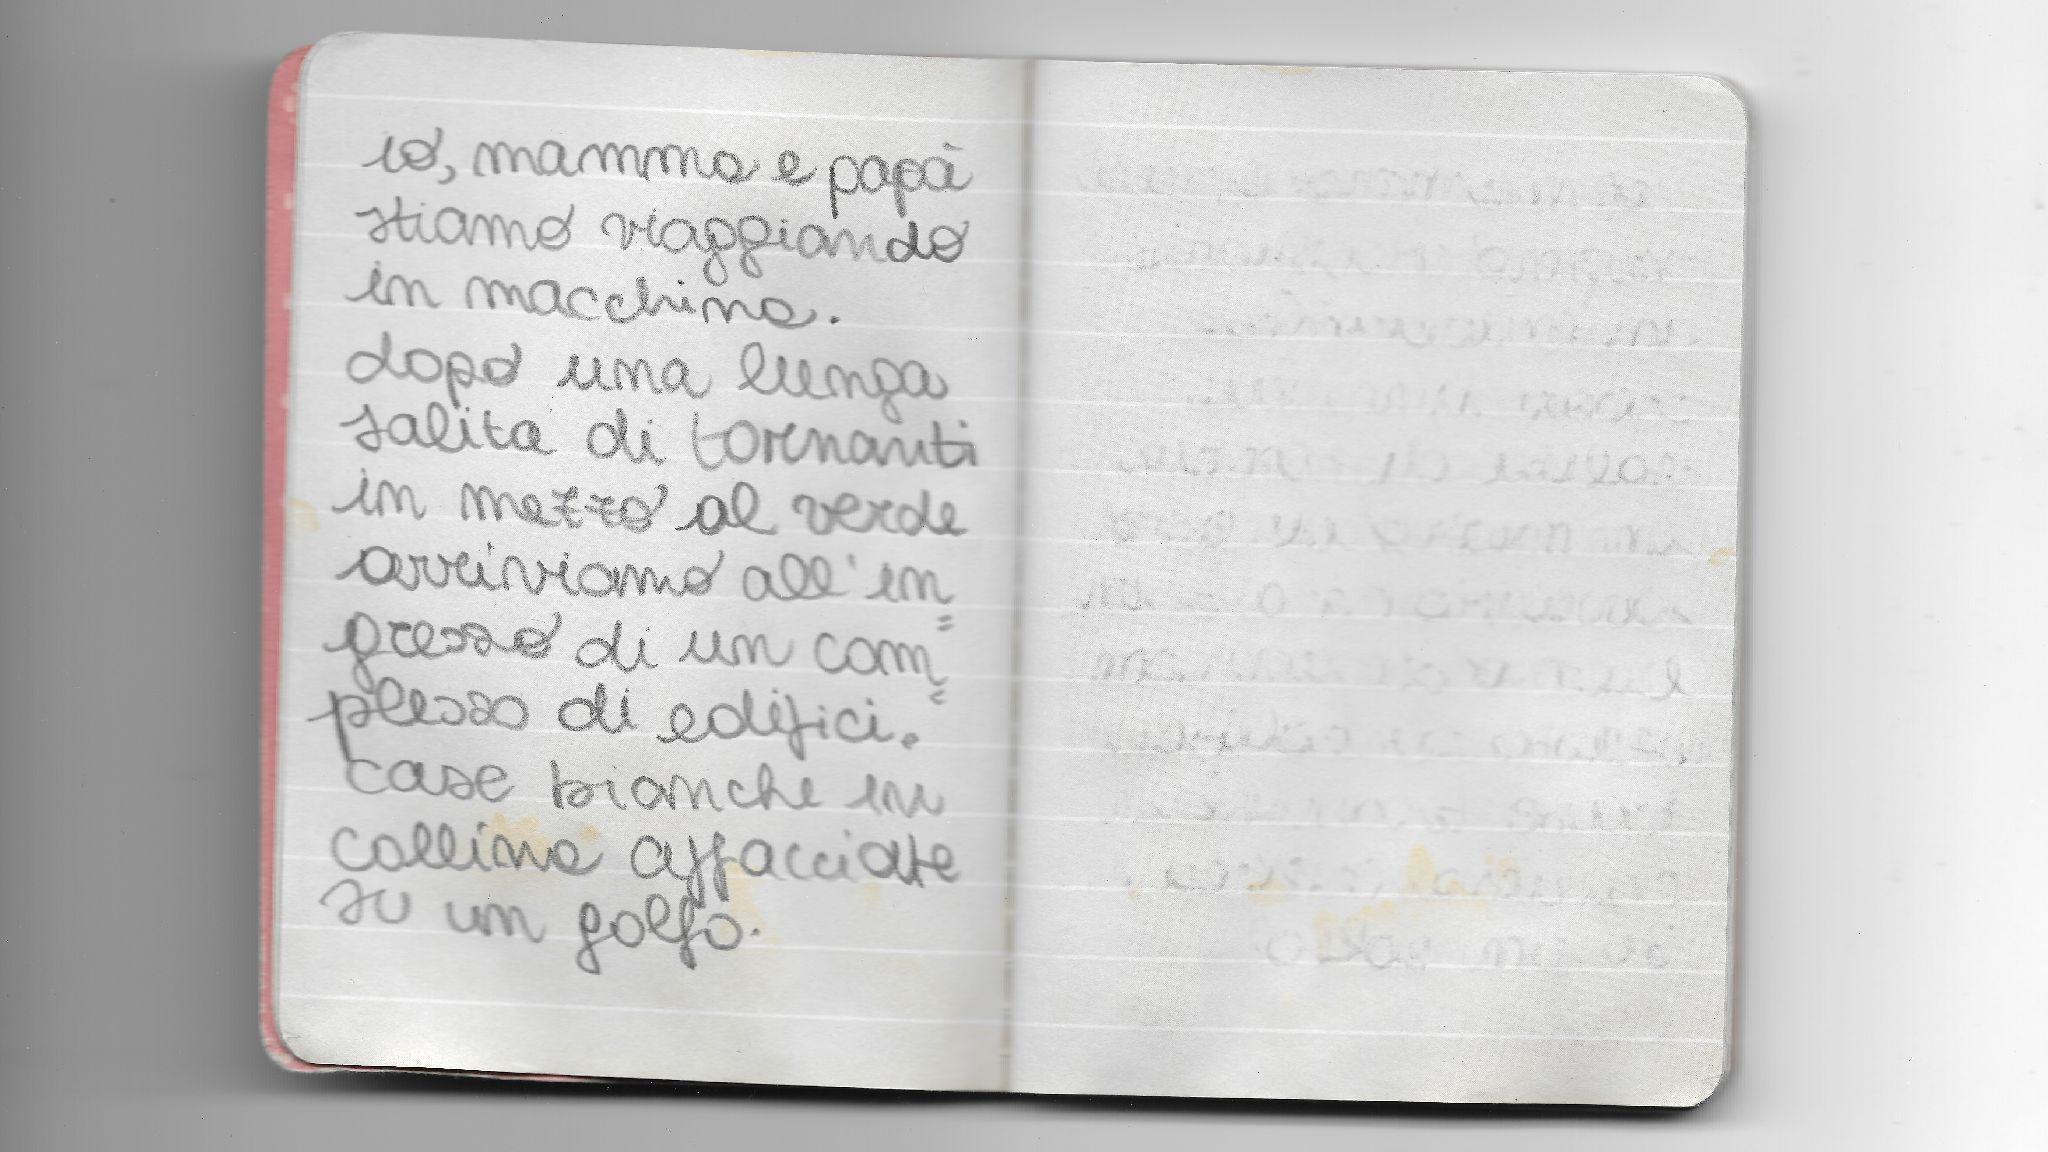 io, mamma e papà
stiamo viaggiando
in macchina.
dopo una lunga
salita di tornanti
in mezzo al verde
arriviamo all'in=
gresso di un com=
plesso di edifici.
case bianche in
collina affacciate
su un golfo.